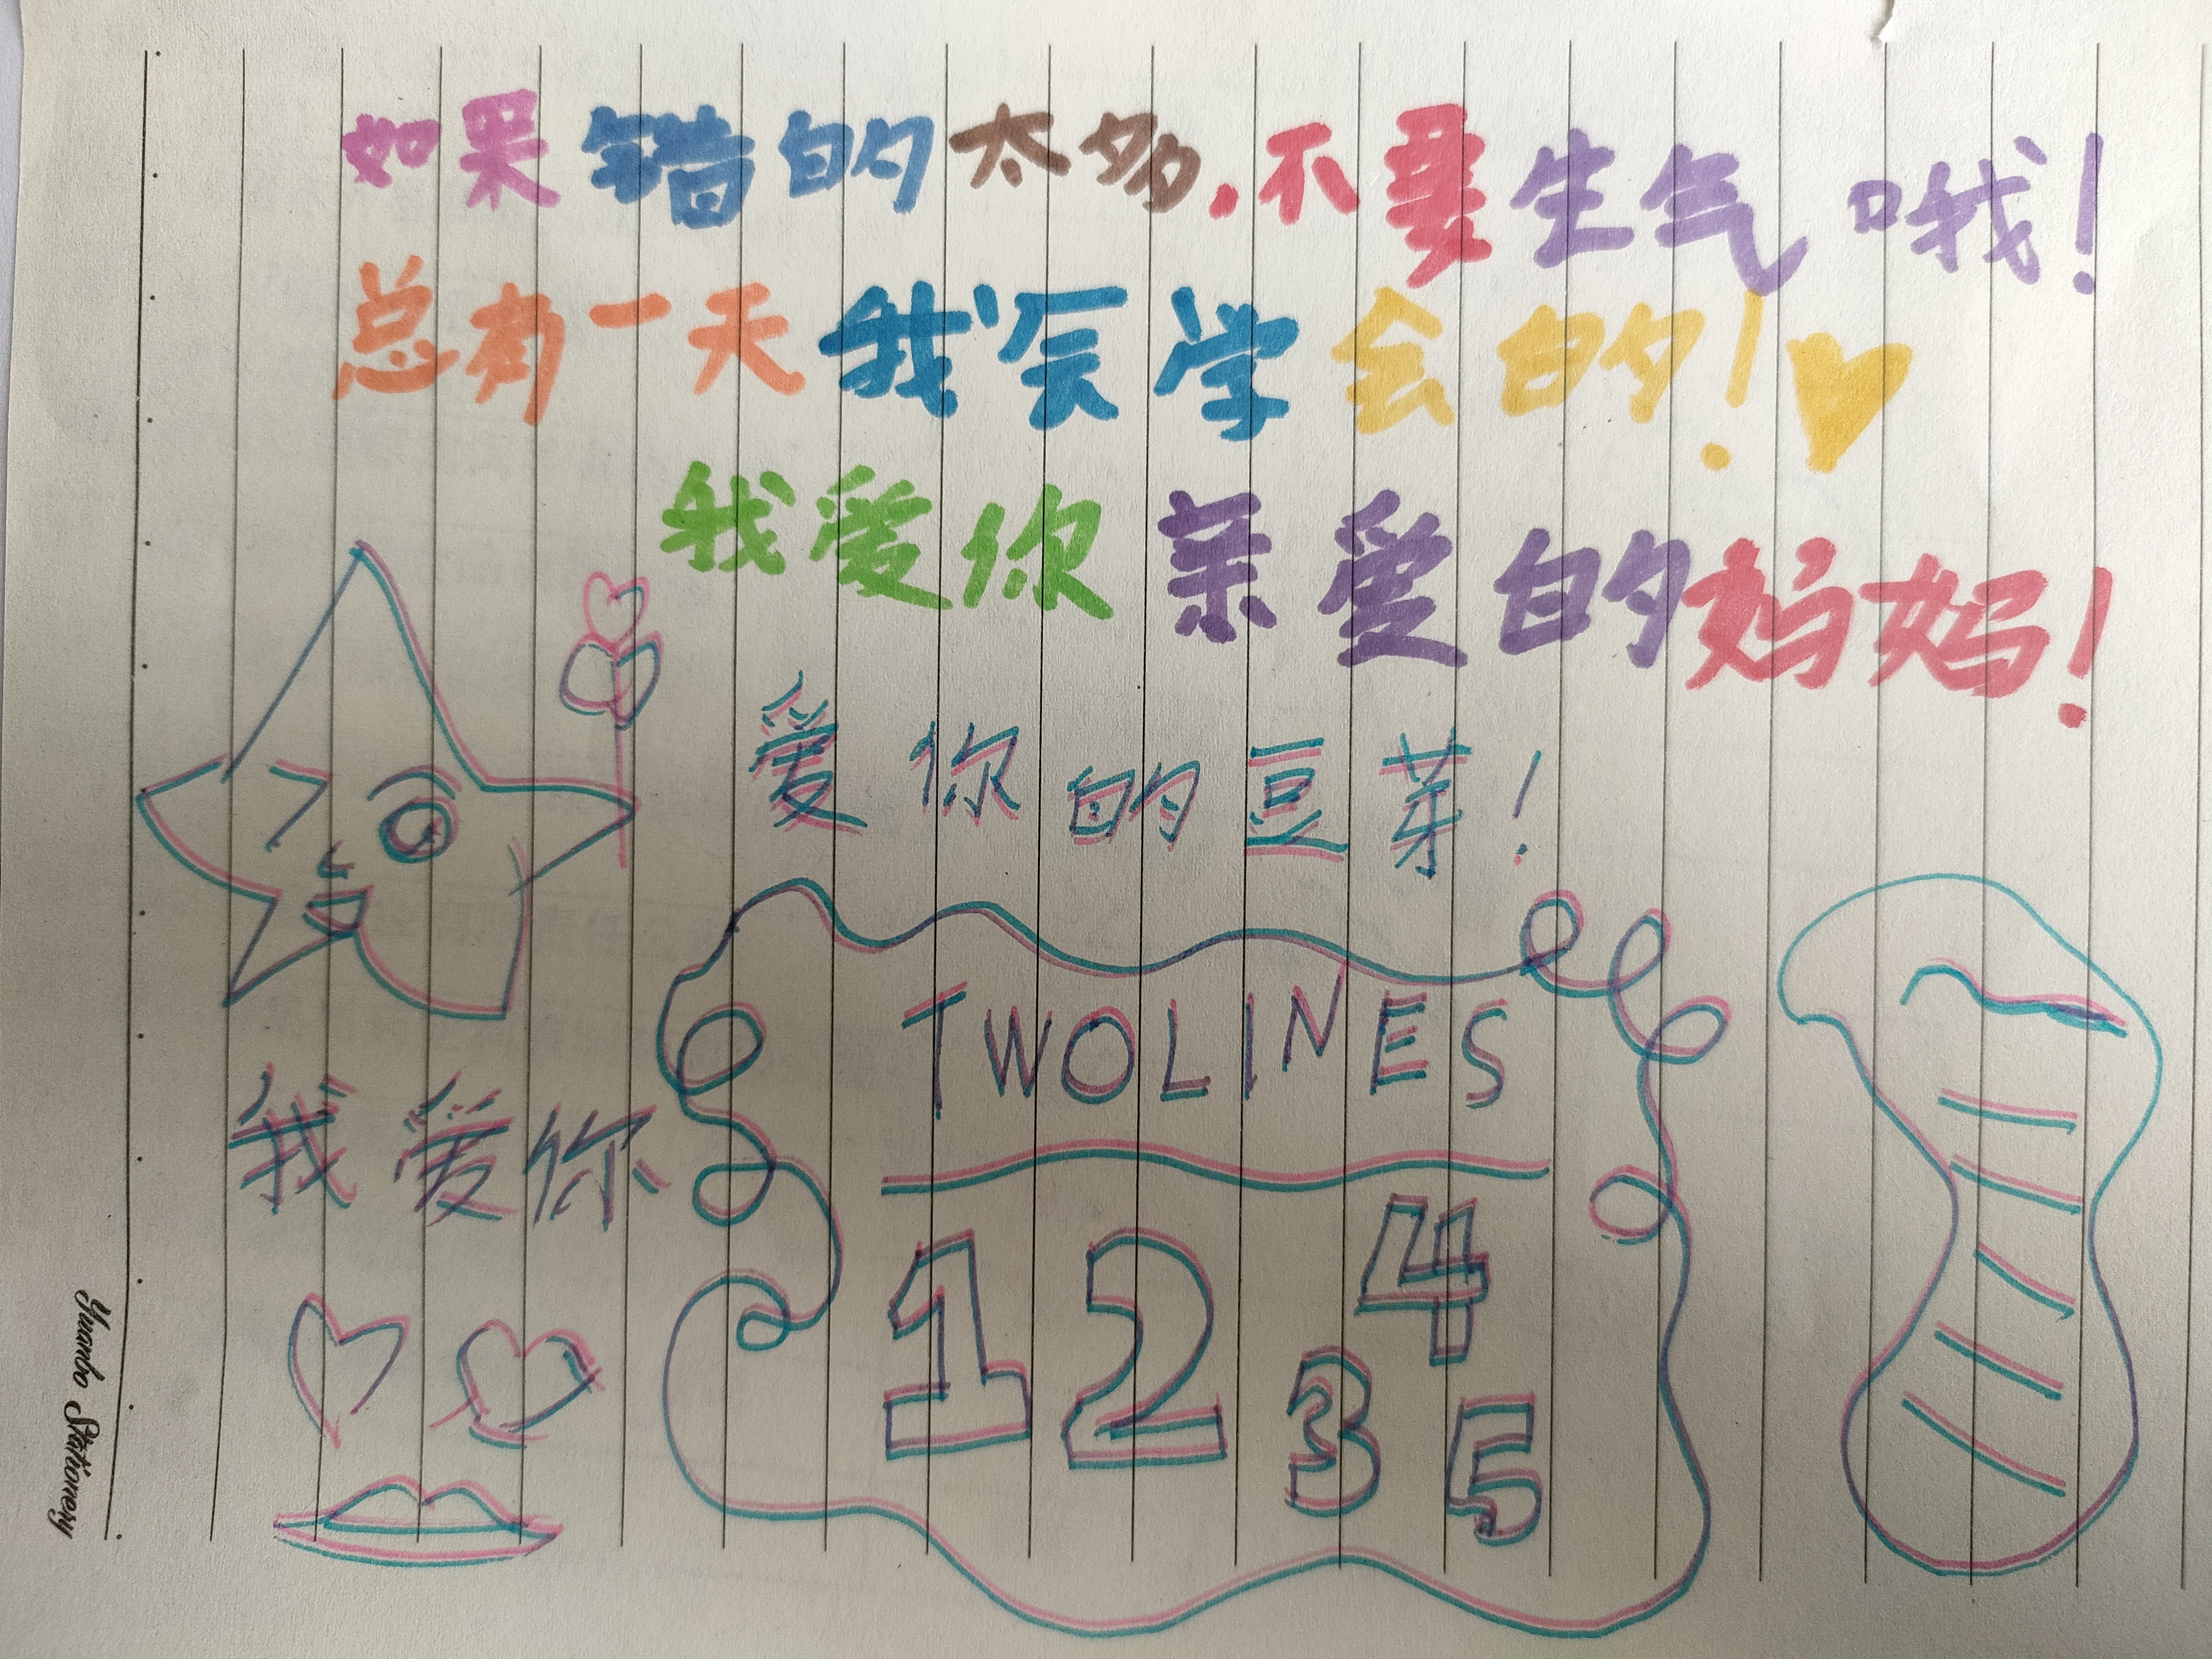 如果错的太多,不要生气哦!
总有一天我会学会的!
我爱你亲爱的妈妈!
爱你的豆芽!
TWOLINES
我爱你
1 2 3 4 5
Yuanbo Stationery